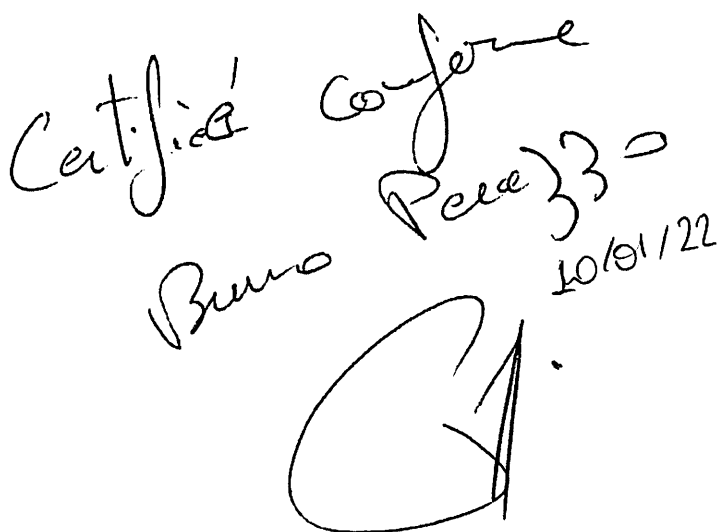 Certifié conforme
Bruno Perazzo
10/01/22